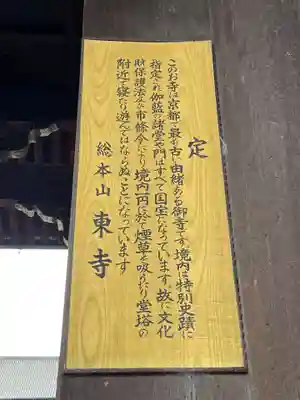 定
このお寺は京都で最も古く由緒ある御寺です、境内は特別史蹟に
指定され伽藍の諸堂や門はすべて国宝になっています、故に文化
財保護法及び市條令により境内一円に於て煙草を吸ったり堂塔の
附近で寝たり遊んではならぬことになっています
総本山 東寺